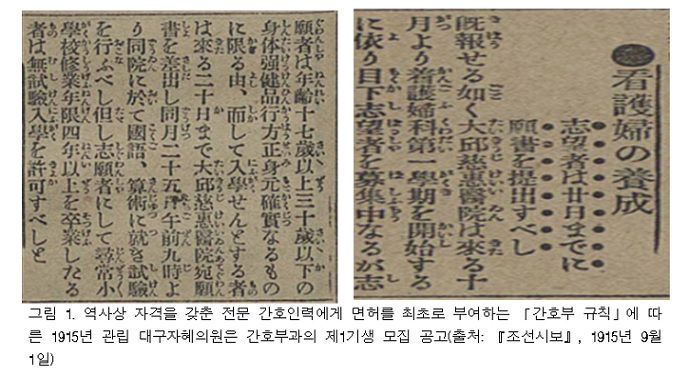 ●看護婦の養成
志望者は廿日までに
願書を提出すべし
既報せる如く大邱慈惠醫院は來る十
月より看護婦科第一學期を開始する
に依り目下志望者を募集中なるが志
願者は年齡十七歲以上三十歲以下の
身体强健品行方正身元確實なるもの
に限る由、而して入學せんとする者
は來る二十日まで大邱慈惠醫院宛願
書を差出し同月二十五日午前九時よ
り同院に於て國語、算術に就き試驗
を行ふべし但し志願者にして尋常小
學校修業年限四年以上を卒業したる
者は無試驗入學を許可すべしと
그림 1. 역사상 자격을 갖춘 전문 간호인력에게 면허를 최초로 부여하는 「간호부 규칙」에 따
른 1915년 관립 대구자혜의원은 간호부과의 제1기생 모집 공고(출처: 『조선시보』, 1915년 9월
1일)